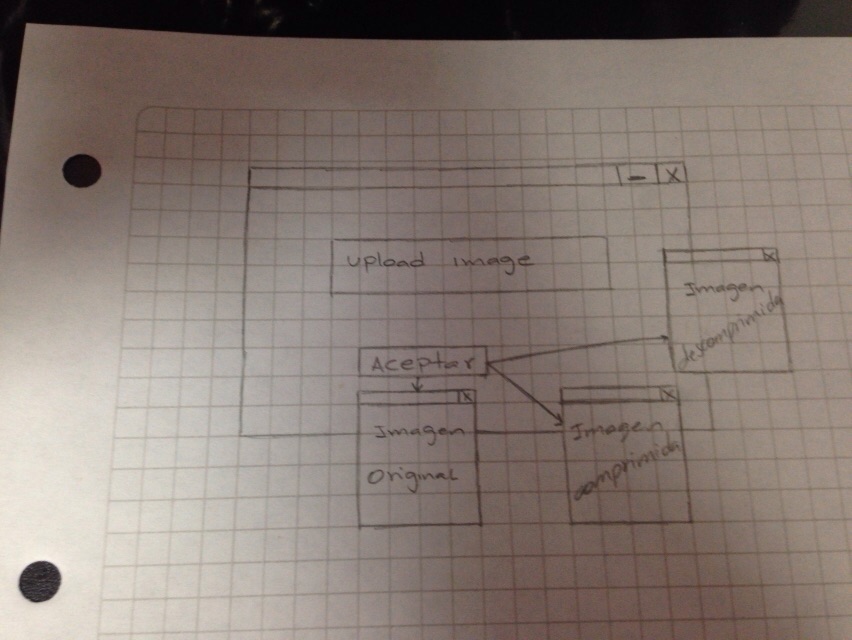 - X
upload image
X
Imagen
descomprimida
Aceptar
X
Imagen
Original
X
Imagen
comprimida